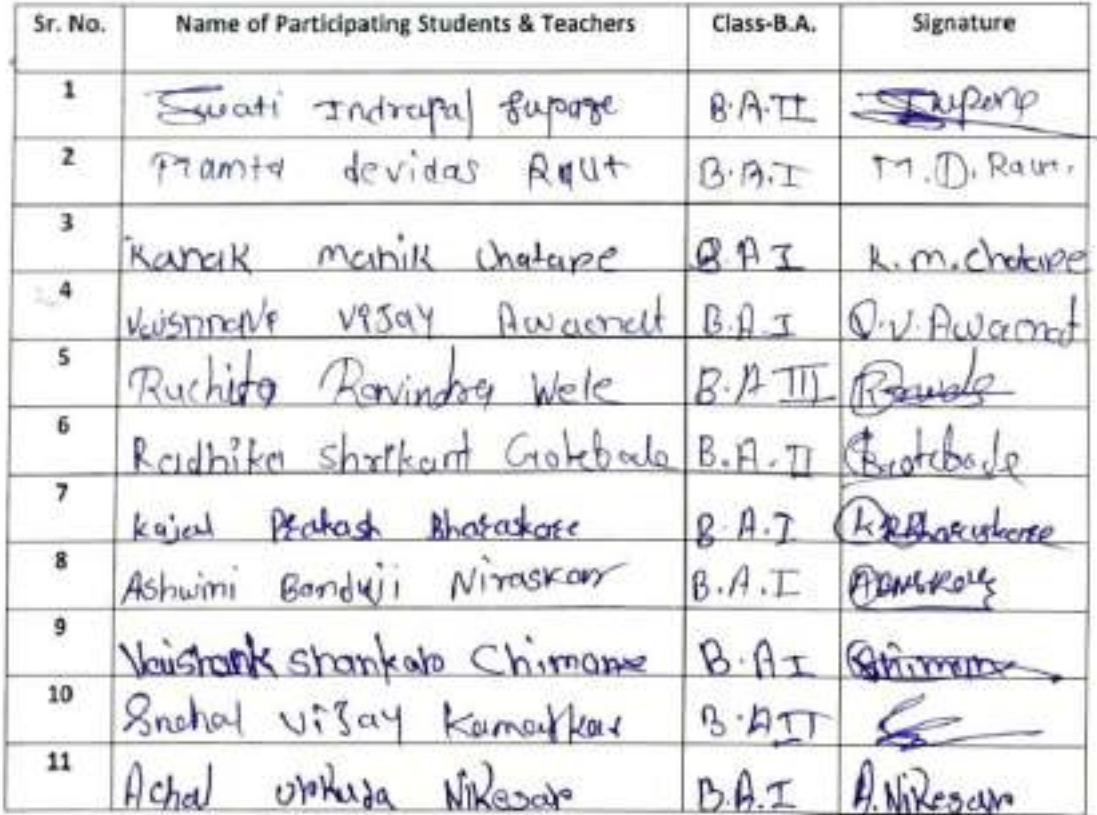 Sr. No. Name of Participating Students & Teachers Class-B.A. Signature
1 Swati Indrapal B.A.II
2 Mamta devidas Raut B.A.I M.D. Raut.
3 Kanak manik Chatare B.A I K.m.Chatare
4 Vaisnnavi Vijay Awacnat B.A.I V.Awacnat
5 Ruchita Ravindra Wele B.A III
6 Radhika Shrikant Gotebade B.A.II Gotebade
7 Kajal Prakash Bharaskare B.A.I K.P.Bharaskare
8 Ashwini Banduji Niraskar B.A.I
9 Shankar Chimane B.AI Chimane
10 Snehal Vijay B.AII
11 Achal Urkuda Nikesar B.A.I A.Nikesar